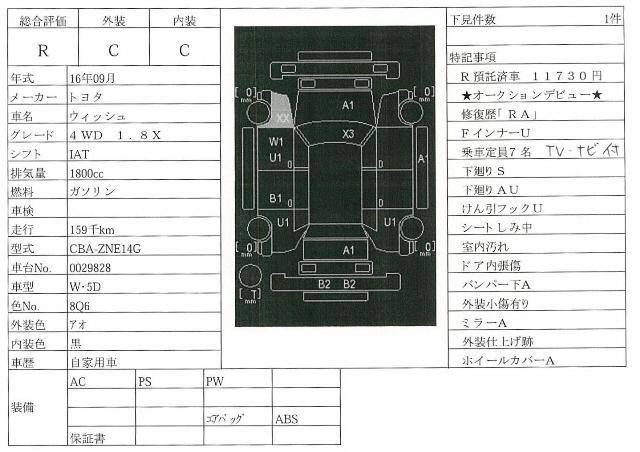 総合評価 外装 内装
R C C
年式 16年09月
メーカー トヨタ
車名 ウィッシュ
グレード 4WD 1.8X
シフト IAT
排気量 1800cc
燃料 ガソリン
車検
走行 159千km
型式 CBA-ZNE14G
車台No. 0029828
車型 W・5D
色No. 8Q6
外装色 アオ
内装色 黒
車歴 自家用車
装備
AC PS PW
エアバッグ ABS
保証書
[0] mm [0] mm
A1
XX
X3
W1
U1
A1
B1
U1 U1
[0] mm [0] mm
A1
B2 B2
[T] mm
下見件数 1件
特記事項
R預託済車 11730円
★オークションデビュー★
修復歴「RA」
FインナーU
乗車定員7名 TV・ナビ付
下廻りS
下廻りAU
けん引フックU
シートしみ中
室内汚れ
ドア内張傷
バンパー下A
外装小傷有り
ミラーA
外装仕上げ跡
ホイールカバーA